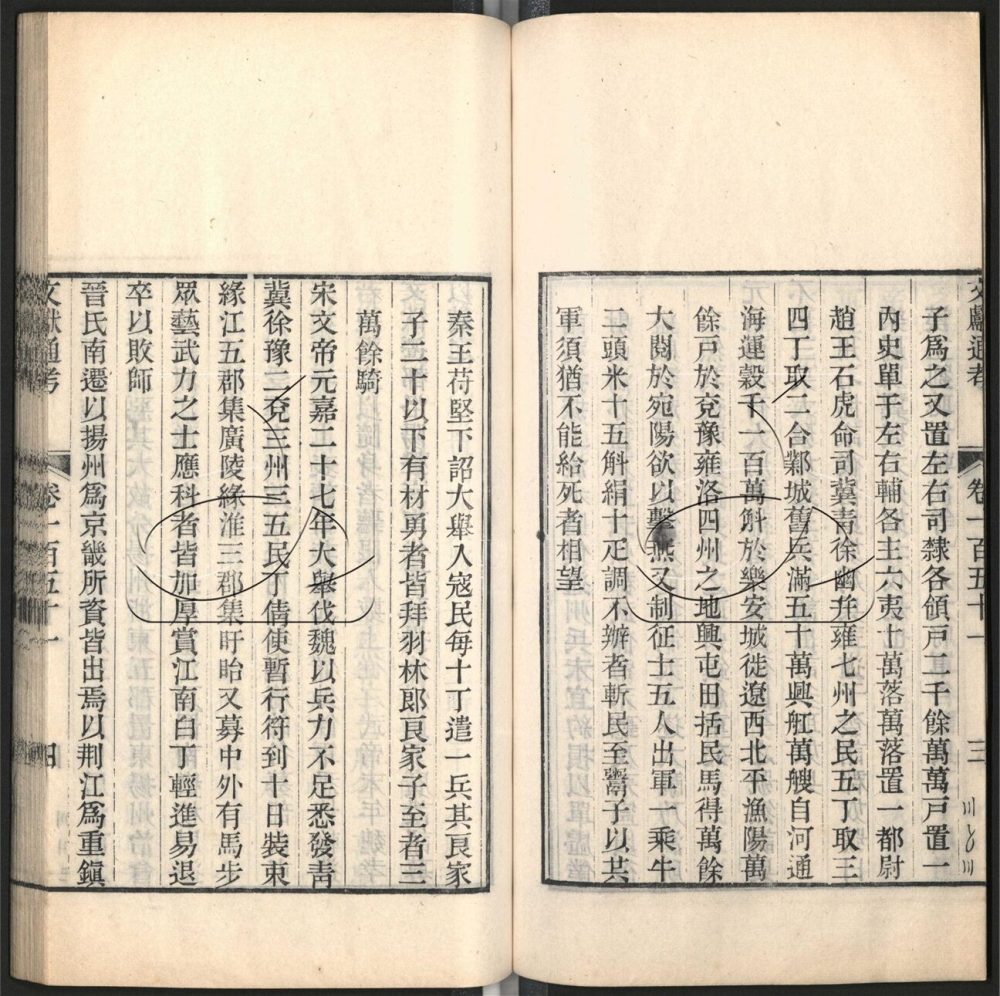 文獻通考 卷一百五十一 三
子爲之又置左右司隸各領戸二千餘萬萬戸置一
內史單于左右輔各主六夷十萬落萬落置一都尉
趙王石虎命司冀靑徐幽幷雍七州之民五丁取三
四丁取二合鄴城舊兵滿五十萬興舡萬艘自河通
海運穀千一百萬斛於樂安城徙遼西北平漁陽萬
餘戸於兗豫雍洛四州之地興屯田括民馬得萬餘
大閱於宛陽欲以擊燕又制征士五人出軍一乘牛
二頭米十五斛絹十疋調不辦者斬民至鬻子以其
軍須猶不能給死者相望
秦王苻堅下詔大舉入寇民每十丁遣一兵其良家
子二十以下有材勇者皆拜羽林郎良家子至者三
萬餘騎
宋文帝元嘉二十七年大舉伐魏以兵力不足悉發靑
冀徐豫二兗三州三五民丁倩使暫行符到十日裝束
緣江五郡集廣陵緣淮三郡集盱眙又募中外有馬步
眾藝武力之士應科者皆加厚賞江南白丁輕進易退
卒以敗師
晉氏南遷以揚州爲京畿所資皆出焉以荆江爲重鎭
文獻通考 卷一百五十一 四